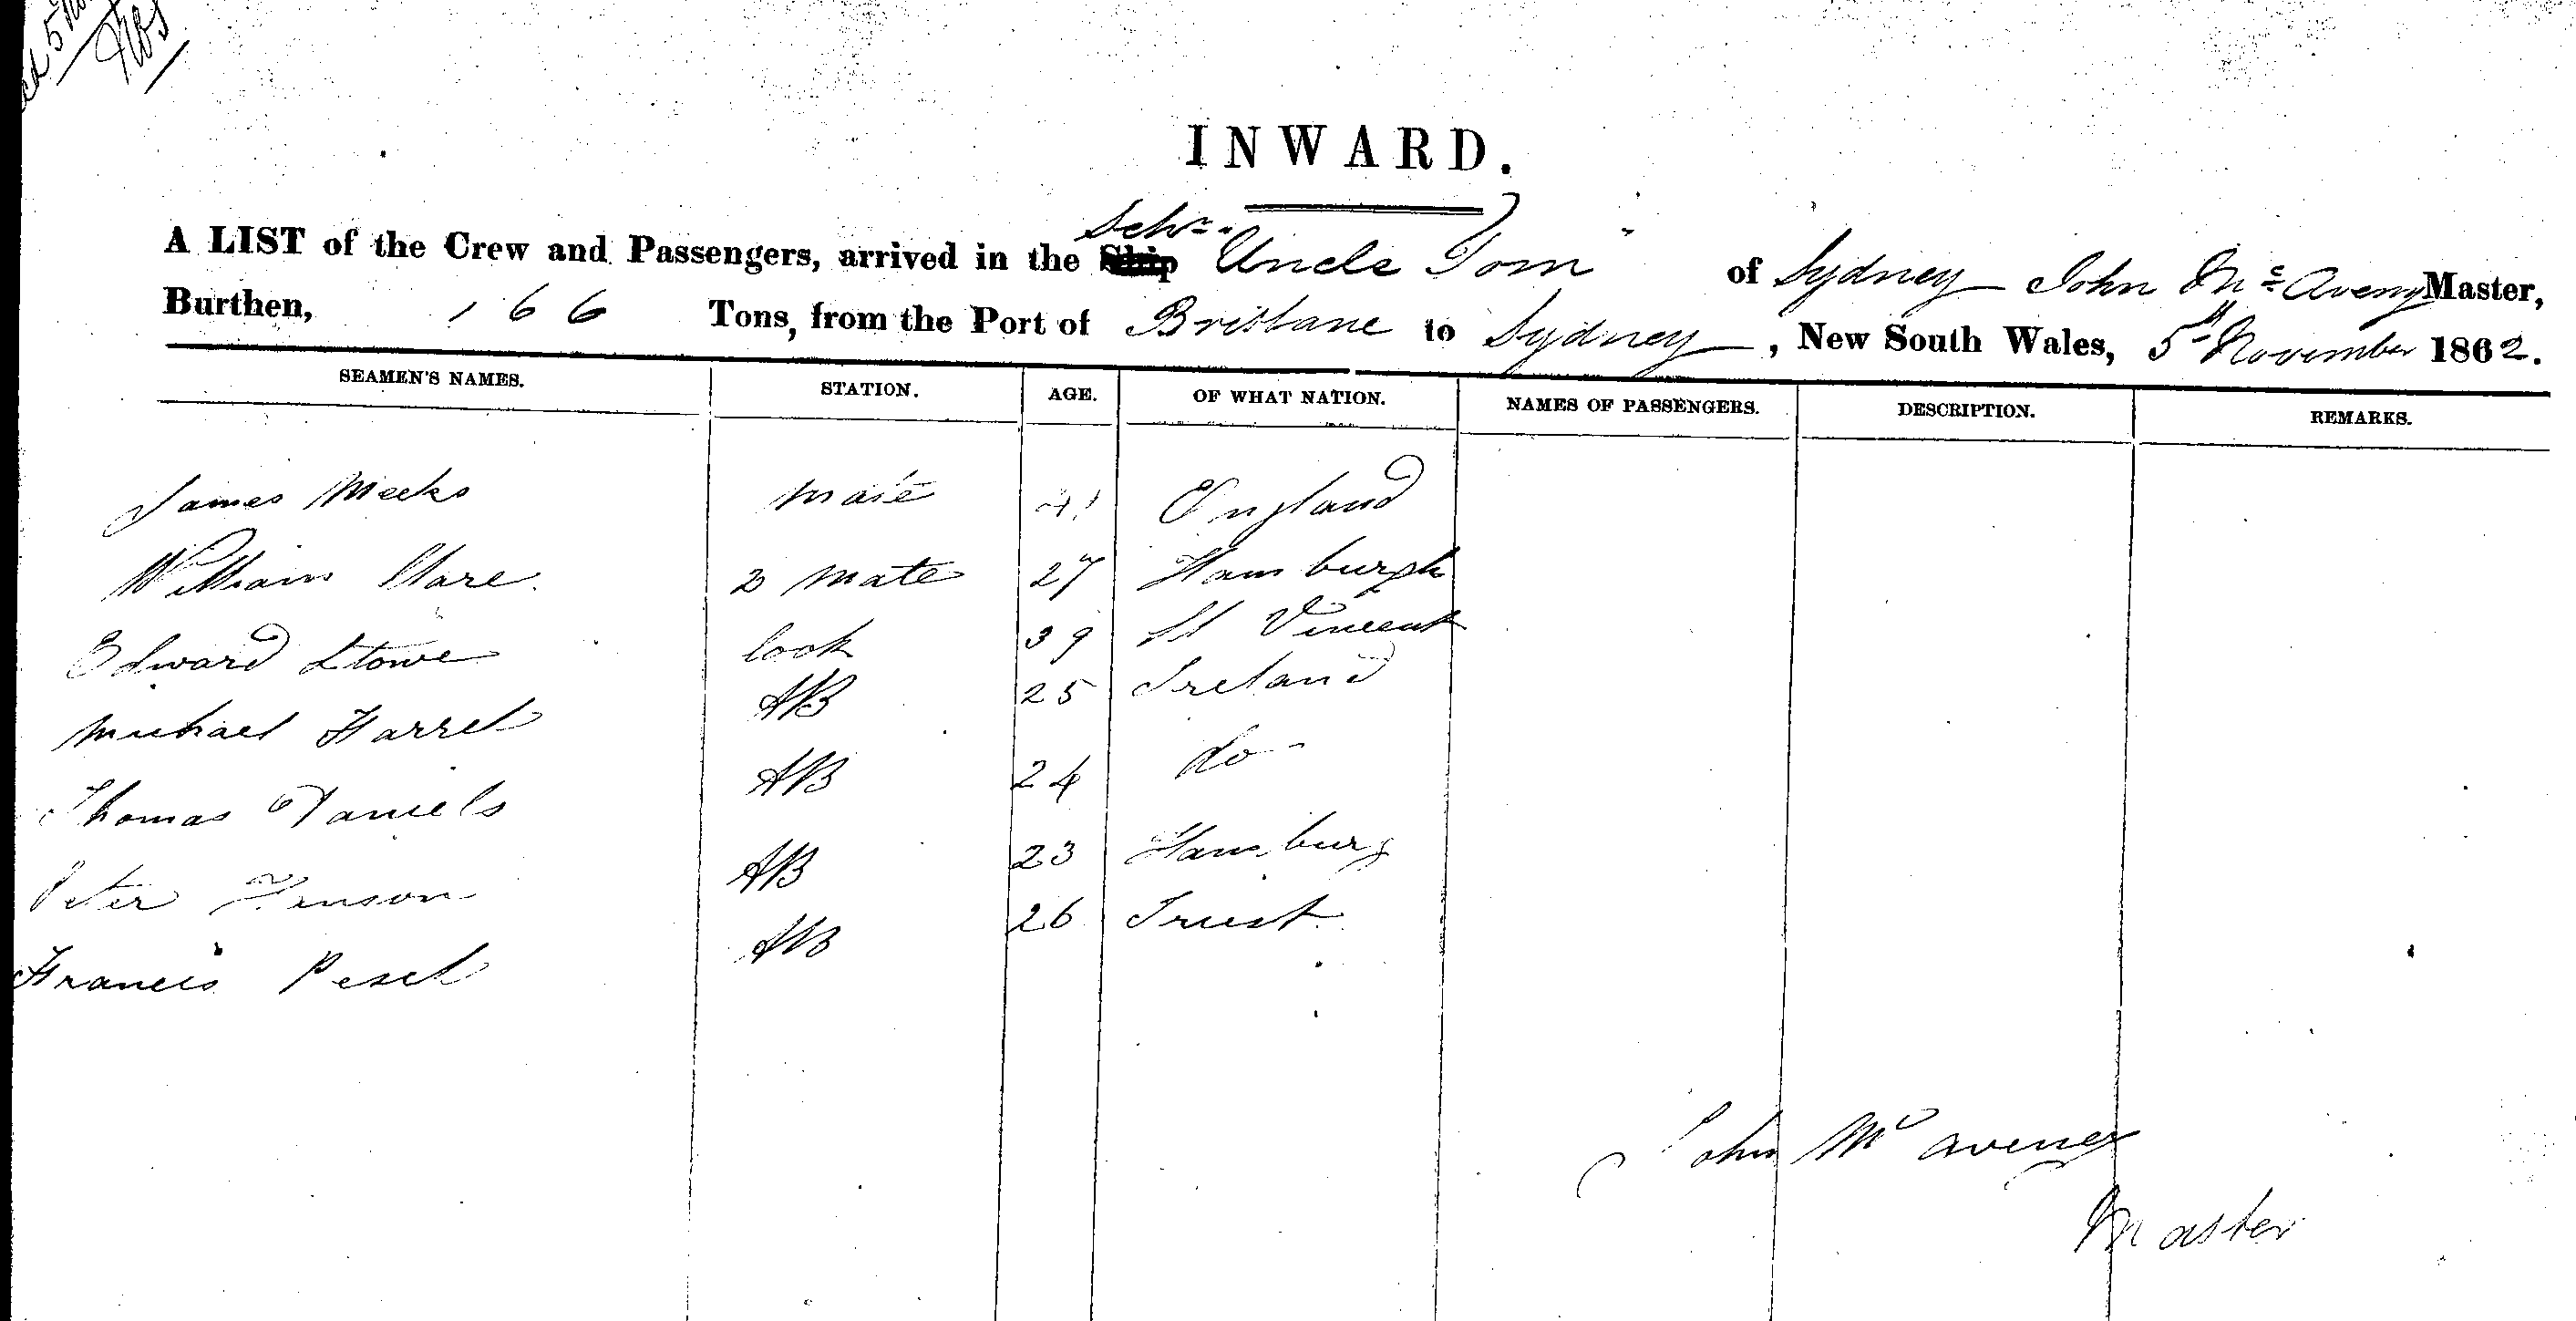 INWARD.
Schr.
A LIST of the Crew and Passengers, arrived in the Ship Uncle Tom of Sydney John Mc Aveney Master,
Burthen, 166 Tons, from the Port of Brisbane to Sydney, New South Wales, 5th November 1862.
SEAMEN'S NAMES. STATION. AGE. OF WHAT NATION. NAMES OF PASSENGERS. DESCRIPTION. REMARKS.
James Meeks Mate England
William 2 Mate 27 Hamburgh
Edward Stowe Cook 39 St Vincent
Michael Farrel AB 25 Ireland
Thomas Daniels AB 24 do
Peter AB 23 Hamburg
Francis AB 26
John Mc Aveney
Master